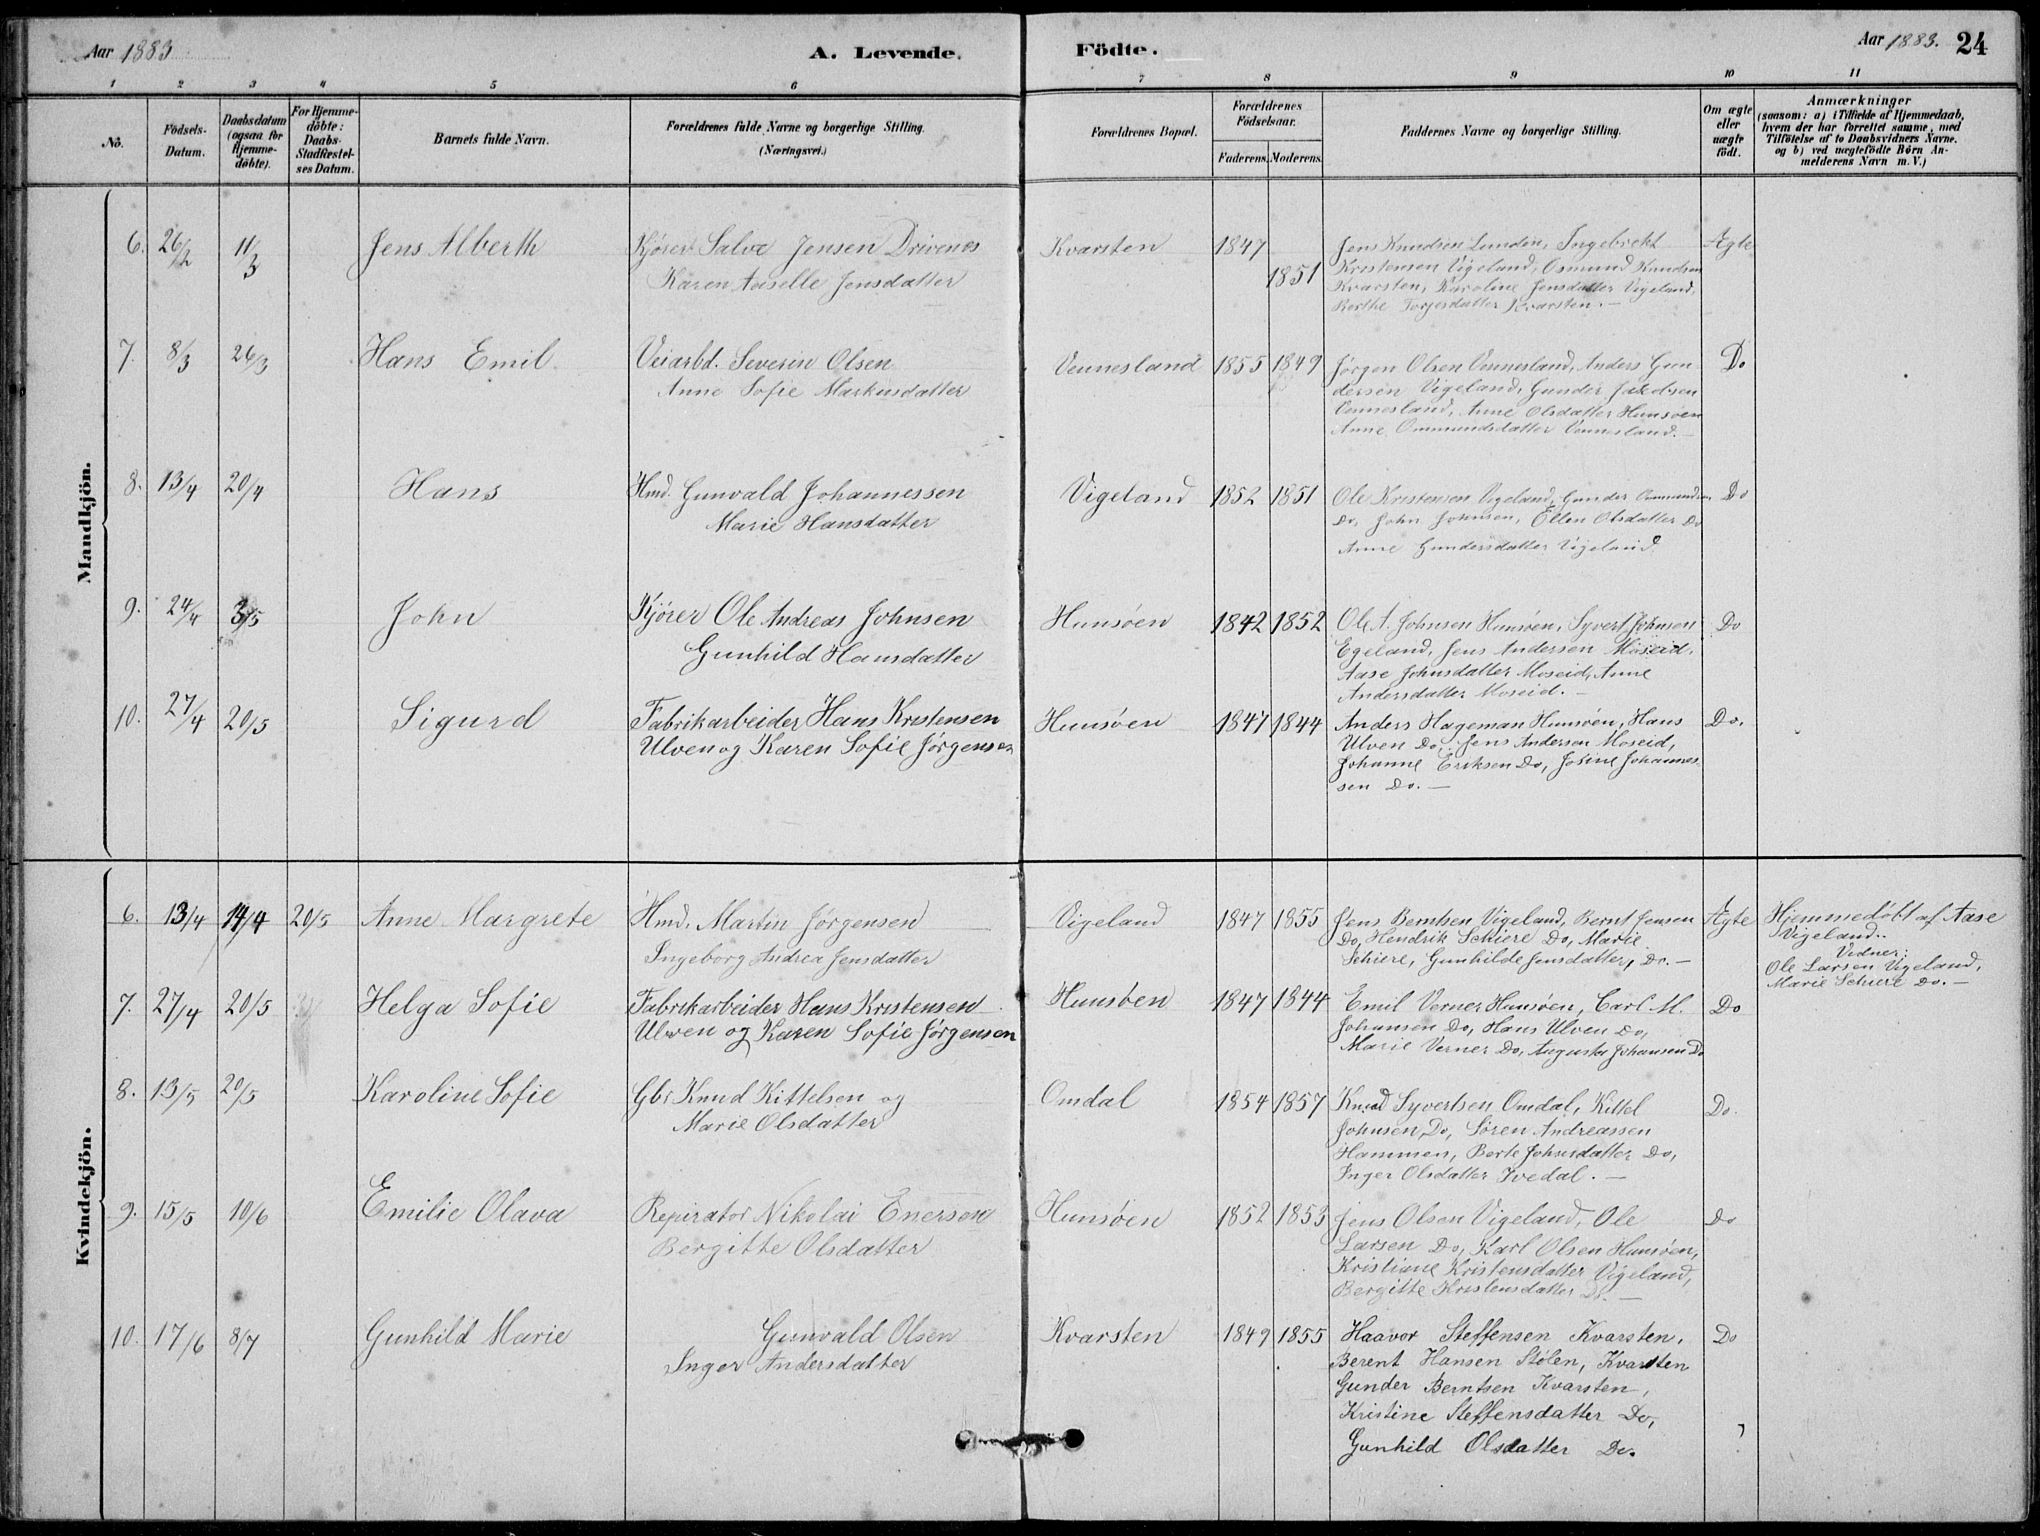 Aar 1883
A. Levende.
Födte.
Aar 1883. 24
1 2 3 4 5 6 7 8 9 10 11
No.
Födsels-
Datum.
Daabsdatum
(ogsaa for
Hjemme-
döbte).
For Hjemme-
döbte:
Daabs-
Stadfestel-
ses Datum.
Barnets fulde Navn.
Forældrenes fulde Navne og borgerlige Stilling.
(Næringsvei.)
Forældrenes Bopæl.
Forældrenes
Födselsaar.
Faderens. Moderens.
Faddernes Navne og borgerlige Stilling.
Om ægte
eller
uægte
födt.
Anmærkninger
(saasom: a) i Tilfælde af Hjemmedaab,
hvem der har forrettet samme, med
Tilföielse af to Daabsvidners Navne,
og b) ved uægtefödte Börn An-
melderens Navn m. V.)
Mandkjön.
6. 26/2 11/3 Jens Alberth
Kjører Salve Jensen Drivenes
Karen Aaselle Jensdatter
Kvarsten 1847 1851
Jens Knudsen Lunden, Torgebrekt
Kristensen Vigeland, Osmund Knudsen
Kvarsten, Karoline Jensdatter Vigeland,
Berthe Torjesdatter Kvarsten. —
Ægte
7. 8/3 26/3 Hans Emil
Veiarbd. Severin Olsen
Anne Sofie Markusdatter
Vennesland 1855 1849
Jørgen Olsen Vennesland, Anders Gun-
dersen Vigeland, Gunder Jakobsen
Vennesland, Anne Olsdatter Hunsøen
Anne Ommundsdatter Vennesland. —
Do
8. 13/4 20/4 Hans
Hmd. Gunvald Johannessen
Marie Hansdatter
Vigeland 1852 1851
Ole Kristensen Vigeland, Gunder Ommundsen
Do, John Johnsen, Ellen Olsdatter Do
Anne Gundersdatter Vigeland
Do
9. 24/4 3/5 John
Kjører Ole Andreas Johnsen
Gunhild Hansdatter
Hunsøen 1842 1852
Ole A. Johnsen Hunsøen, Syvert Johnsen
Egeland, Jens Andersen Moseid,
Aase Johnsdatter Moseid, Anne
Andersdatter Moseid. —
Do
10. 27/4 20/5 Sigurd
Fabrikarbeider Hans Kristensen
Ulven og Karen Sofie Jørgensen
Hunsøen 1847 1844
Anders Hageman Hunsøen, Hans
Ulven Do, Jens Andersen Moseid,
Johanne Eriksen Do, Josine Johannes-
sen Do. —
Do.
Kvindekjön.
6. 13/4 14/4 20/5 Anne Margrete
Hmd. Martin Jørgensen
Ingeborg Andrea Jensdatter
Vigeland 1847 1855
Jens Berntsen Vigeland, Bernt Jensen
Do, Hendrik Schiere Do, Marie
Schiere, Gunhilde Jensdatter, Do. —
Ægte
Hjemmedøbt af Aase
Vigeland.
Vidner:
Ole Larsen Vigeland,
Marie Schiere Do. —
7. 27/4 20/5 Helga Sofie
Fabrikarbeider Hans Kristensen
Ulven og Karen Sofie Jørgensen
Hunsøen 1847 1844
Emil Verner Hunsøen, Carl M.
Johansen Do, Hans Ulven Do,
Marie Verner Do, Augusta Johansen Do
Do
8. 13/5 20/5 Karoline Sofie
Gbr Knud Kittelsen og
Marie Olsdatter
Omdal 1854 1857
Knud Syvertsen Omdal, Kittel
Johnsen Do, Søren Andreassen
Hammen, Berte Johnsdatter Do,
Inger Olsdatter Ivedal. —
Do.
9. 15/5 10/6 Emilie Olava
Repirator Nikolai Enerson
Bergitte Olsdatter
Hunsøen 1852 1853
Jens Olsen Vigeland, Ole
Larsen Do, Karl Olsen Hunsøen,
Kristiane Kristensdatter Vigeland,
Bergitte Kristensdatter Do. —
Do
10. 17/6 8/7 Gunhild Marie
Gunvald Olsen
Inger Andersdatter
Kvarsten 1849 1855
Haavor Steffensen Kvarsten,
Berent Hansen Stølen, Kvarsten
Gunder Berntsen Kvarsten,
Kristine Steffensdatter Do,
Gunhild Olsdatter Do.
Do